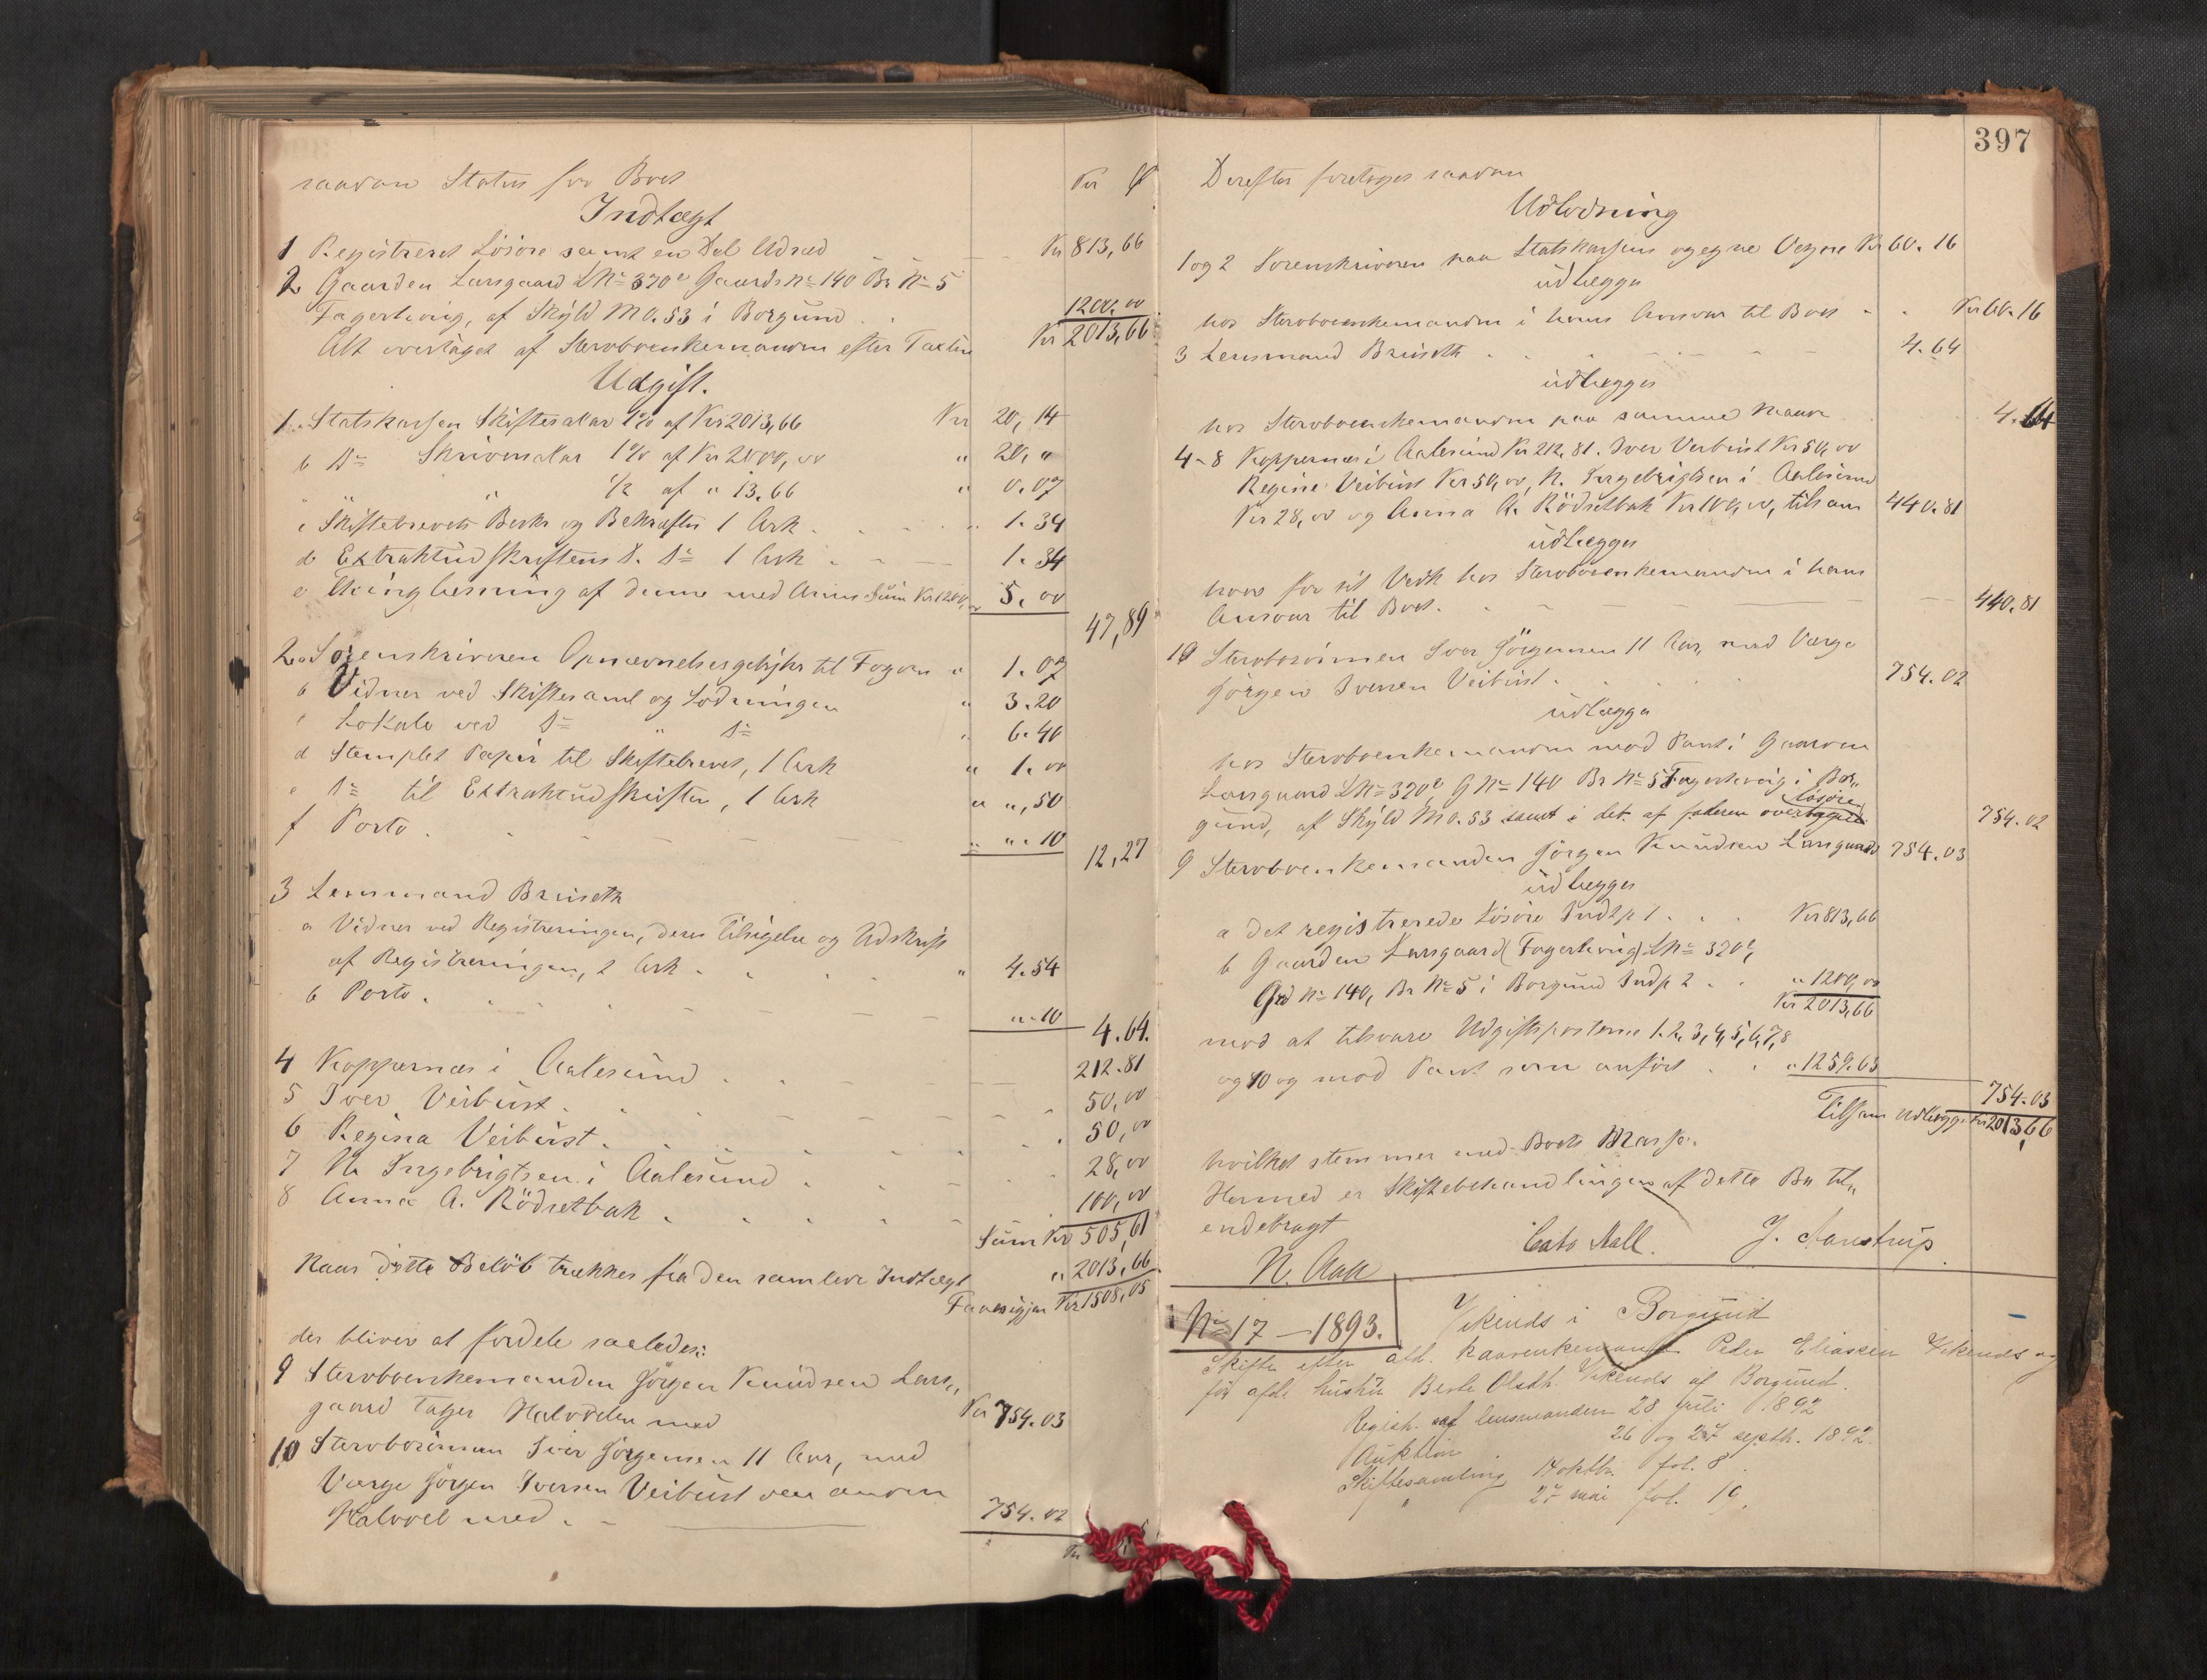 saadan Status for Boet Kr Ø
Indtægt
1 Registreret Løsøre samt en Del Udsæd Kr 813,66
2 Gaarden Larsgaard LNr 320e Gaards Nr 140 Br Nr 5
Fagerhvig, af Skyld M 0.53 i Borgund 1200.00
Alt overtaget af Sterboenkemanden efter Taxten Kr 2013,66
Udgift.
1 a Statskassen Skiftesalar 1% af Kr 2013,66 Kr 20,14
b Do Skriversalar 1% af Kr 2000,00 " 20,"
" " ½ af " 13.66 " 0.07
c Skiftebrevets Beskr og Bekræftn 1 Ark 1.34
d Extraktudskriftens D. Do 1 Ark 1.34
e Thinglæsning af denne med Ann Sum Kr 1200,00 5,00
47,89
2 a Sorenskriveren Opnævnelsesgebyhr til Fogden " 1.07
b Vidner ved Skiftesaml og Lodningen " 3.20
c Lokale ved Do " Do " 6.40
d Stemplet Papir til Skiftebrevet, 1 Ark " 1.00
e Do til Extraktudskriften, 1 Ark " ",50
f Porto " ".10
12,27
3 Lensmand Bruseth
a Vidner ved Registreringen, deres Tilsigelse og Udskrift
af Registreringen, 2 Ark " 4.54
b Porto ".10
4.64.
4 Koppernæs i Aalesund 212.81
5 Iver Veibust 50,00
6 Regina Veibust 50,00
7 N. Ingebrigtsen i Aalesund 28,00
8 Anna A. Rödsetbak 100,00
Sum Kr 505,61
Naar dette Beløb trækkes fra den samlede Indtægt " 2013,66
Fremsigjen Kr 1508,05
der bliver at fordele saaledes:
9 Sterboenkemanden Jörgen Knudsen Lars„
gaard tager Halvdelen med Kr 754.03
10 Sterbosönnen Iver Jörgensen 11 Aar, med
Værge Jörgen Iversen Veibust den anden
Halvdel med 754.02
397
Derefter foretoges saadan
Udlodning
1 og 2 Sorenskriveren paa Statskassens og egne Vegne Kr 60.16
udlægges
hos Sterboenkemanden i hans Ansvar til Boet Kr 60.16
3 Lensmand Bruseth 4.64
udlægges
hos Sterboenkemanden paa samme Maade 4.64
4-8 Koppernæs i Aalesund Kr 212,81. Iver Veibust Kr 50,00
Regine Veibust Kr 50,00, N. Ingebrigtsen i Aalesund
Kr 28,00 og Anna A. Rödsetbak Kr 100,00, tilsam 440.81
udlægges
hver for sit Vedk hos Sterboenkemanden i hans
Ansvar til Boet. 440.81
10 Sterbosönnen Iver Jörgensen 11 Aar, med Værge
Jörgen Iversen Veibust. 754.02
udlægges
hos Sterboenkemanden mod Pant i Gaarden
Larsgaard LNr 320e, GNr 140 Br Nr 5 Fagerhvig i Bor„
gund, af Skyld M 0.53 samt i det af faderen overtagne løsøre 754.02
9 Sterboenkemanden Jörgen Knudsen Larsgaard 754.03
udlægges
a det registrerede Løsøre Indt p 1 Kr 813,66
b Gaarden Larsgaard (Fagerhvig) LNr 320e,
Grd Nr 140, Br Nr 5 i Borgund Indp 2 " 1200,00
Kr 2013,66
mod at tilsvare Udgiftsposterne 1.2.3,4,5,6,7,8
og 10 og mod Pant som anført " 1259.63
754.03
Tilsam Udlægges Kr 2013,66
hvilket stemmer med Boets Masse.
Hermed er Skiftebehandlingen af dette Bo til„
endebragt
N. Aaa Cato Mall. J. Aanstrup
No 17 – 1893. Vikends i Borgund
Skifte efter afd. kaarenkemand Peder Eliassen Vikends og
før afd. hustru Berte Olsdt. Vikends af Borgund.
Registr. af lensmanden 28 juli 1892
Auktion 26 og 27 septb. 1892.
Skiftesamling 14 oktbr. fol. 8
" 27 mai fol. 19.